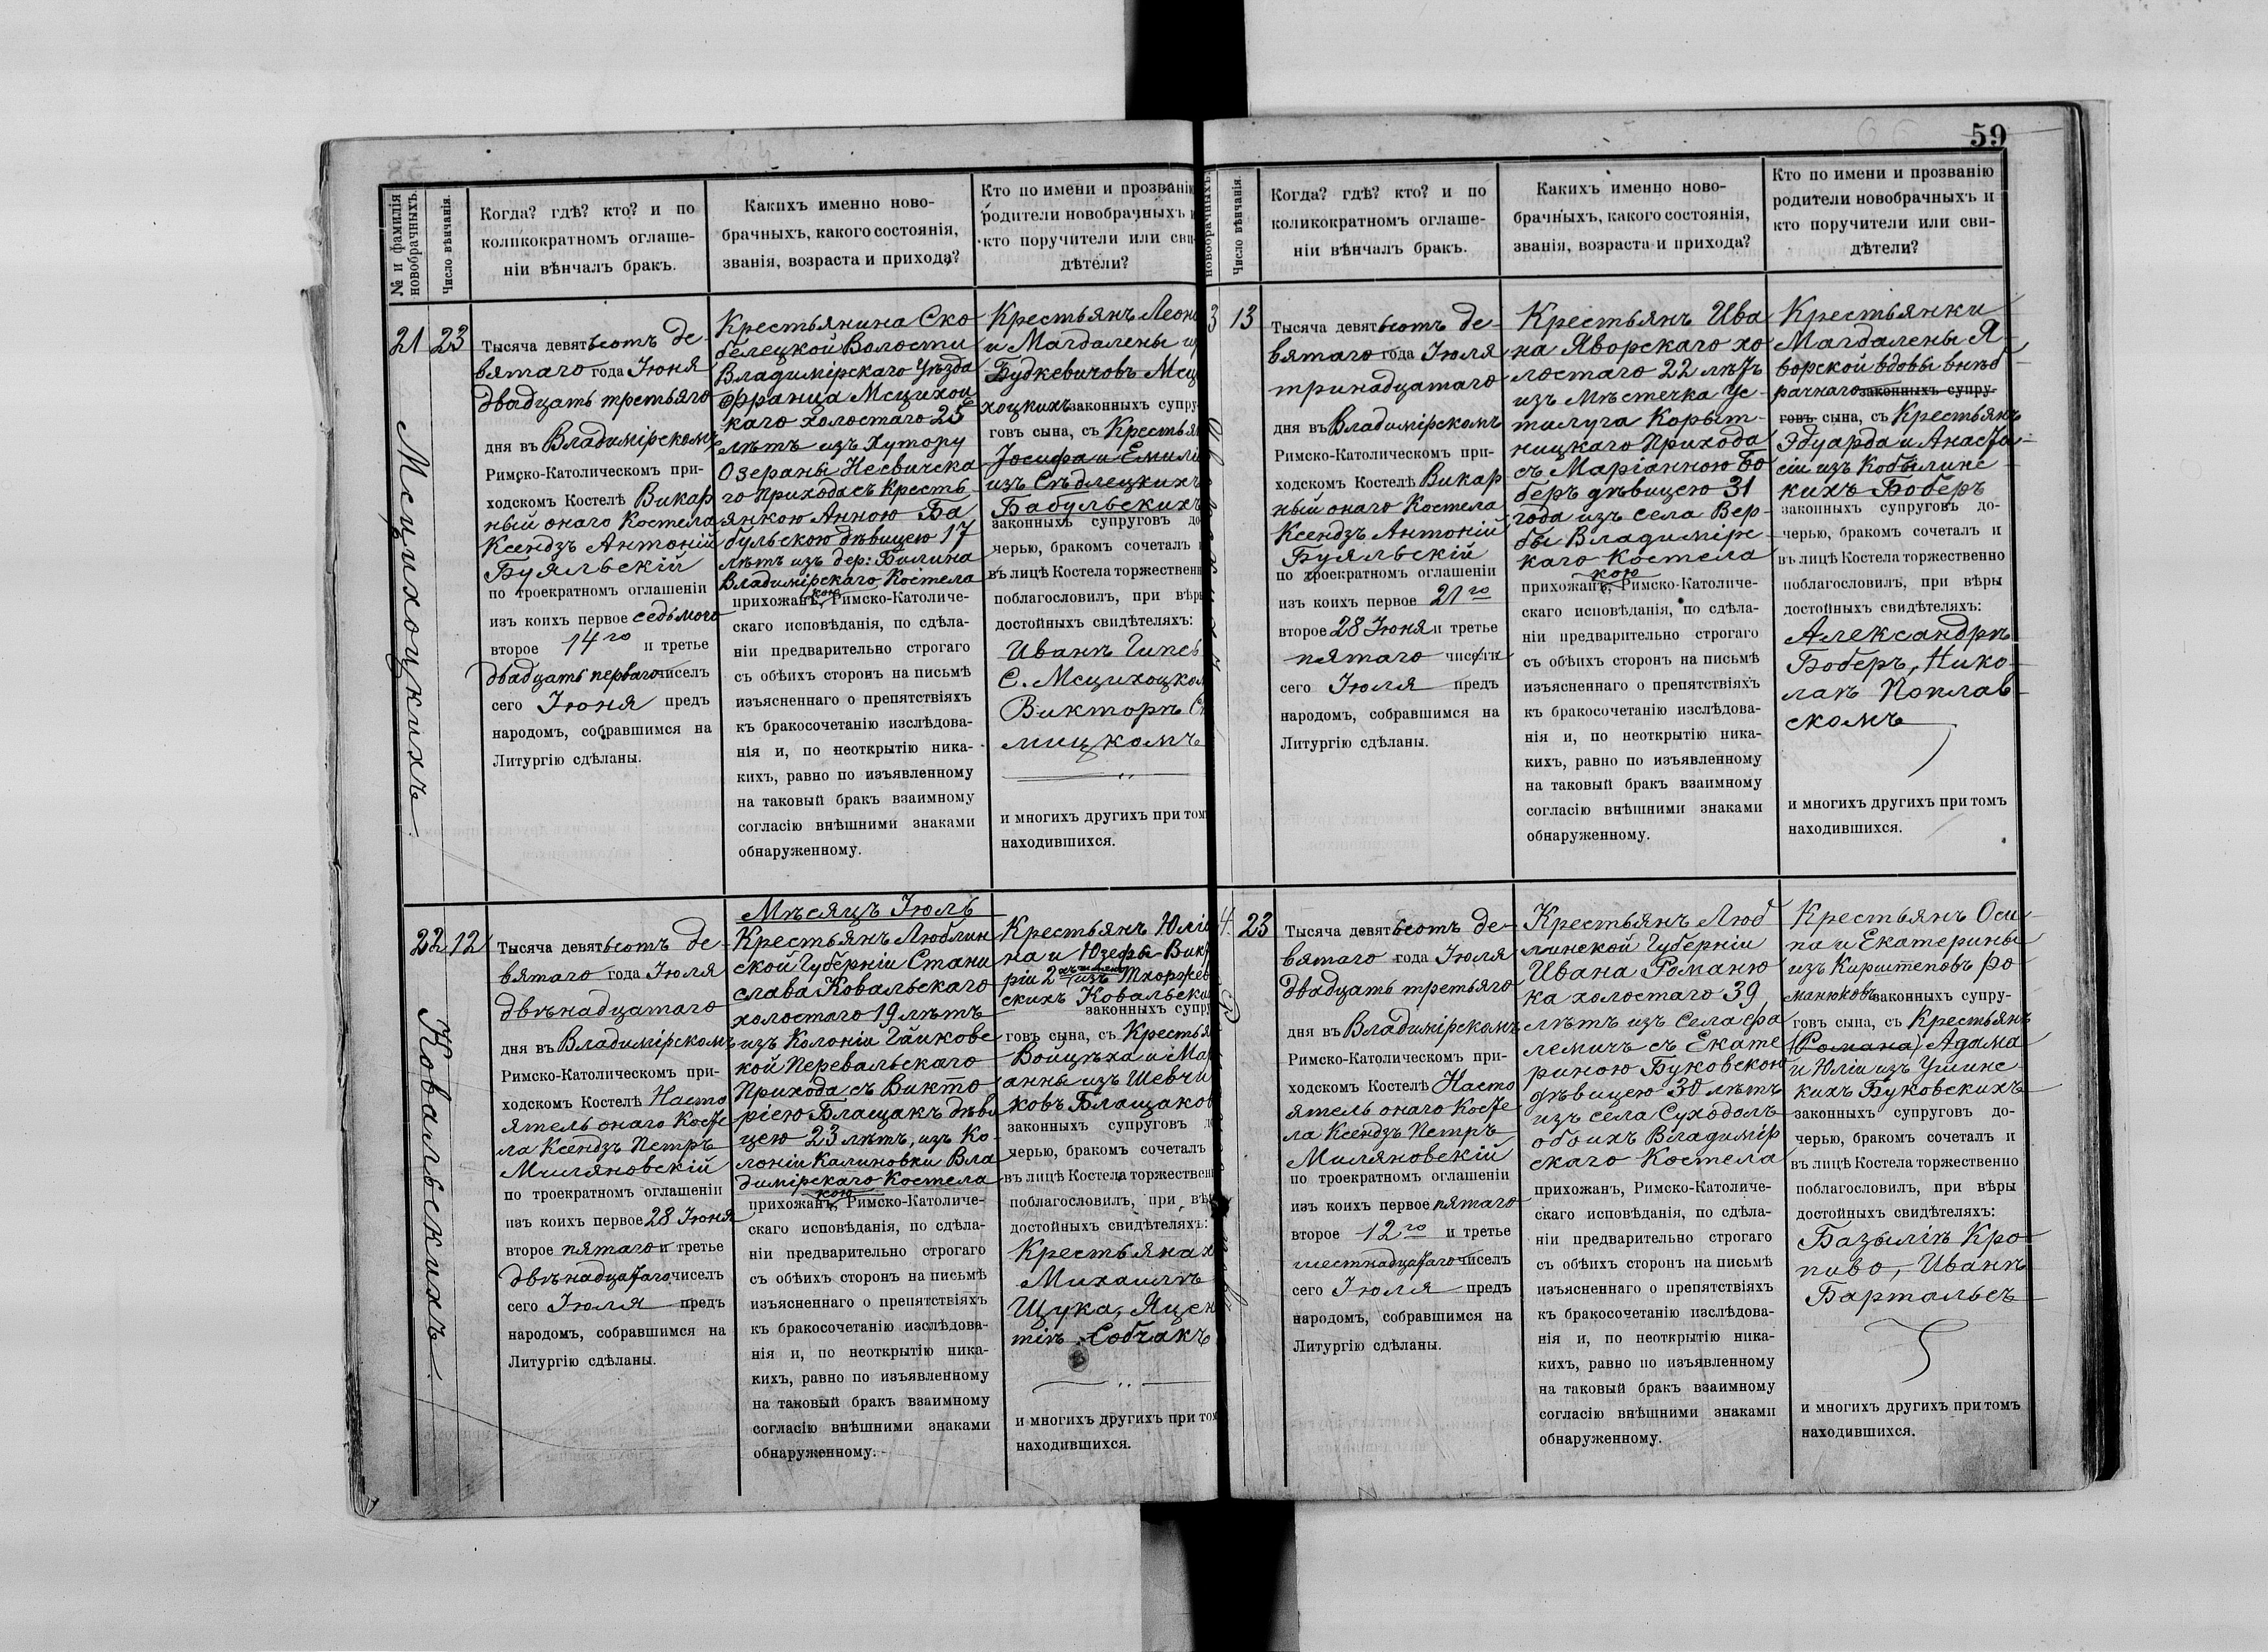 59
№ и фамилія
новобрачныхъ.
Число вѣнчанія.
Когда? гдѣ? кто? и по
коликократномъ оглаше-
ніи вѣнчалъ бракъ.
Какихъ именно ново-
брачныхъ, какого состоянія,
званія, возраста и прихода?
Кто по имени и прозванію
родители новобрачныхъ и
кто поручители или сви-
дѣтели?
21
23
Мсцихоцкихъ
Тысяча девятьсотъ де-
вятаго года Іюня
двадцать третьяго
дня въ Владимірскомъ
Римско-Католическомъ при-
ходскомъ Костелѣ Викар
ный онаго Костела
Ксендзъ Антоній
Буяльскій
по троекратномъ оглашеніи
изъ коихъ первое седьмого
второе 14го и третье
двадцать перваго чиселъ
сего Іюня предъ
народомъ, собравшимся на
Литургію сдѣланы.
Крестьянина Ско
белецкой Волости
Владимірскаго Уѣзда
Франца Мсцихоц
каго холостаго 25
лѣтъ изъ Хутору
Озераны Несвичска
го прихода съ кресть
янкою Анною Ба
бульскою дѣвицею 17
лѣтъ изъ дер: Билина
Владимірскаго Костела
кою
прихожанъ, Римско-Католиче-
скаго исповѣданія, по сдѣла-
ніи предварительно строгаго
съ обѣихъ сторонъ на письмѣ
изъясненнаго о препятствіяхъ
къ бракосочетанію изслѣдова-
нія и, по неоткрытію ника-
кихъ, равно по изъявленному
на таковый бракъ взаимному
согласію внѣшними знаками
обнаруженному.
Крестьянъ Леон
и Магдалены
Будкевичовъ Мсц
хоцкихъ законныхъ супру
говъ сына, съ Крестья
Іосифа и Емили
изъ Сѣдлецкихъ
Бабульскихъ
законныхъ супруговъ до
черью, бракомъ сочеталъ
въ лицѣ Костела торжествен
поблагословилъ, при вѣр
достойныхъ свидѣтеляхъ:
Иванъ Гипсъ
С. Мсцихоцкой
Викторъ
лицкомъ
и многихъ другихъ при том
находившихся.
22
12
Ковальскихъ
Тысяча девятьсотъ де-
вятаго года Іюля
двѣнадцатаго
дня въ Владимірскомъ
Римско-Католическомъ при-
ходскомъ Костелѣ Насто
ятель онаго Косте
ла Ксендзъ Петръ
Миляновскій
по троекратномъ оглашеніи
изъ коихъ первое 28 Іюня
второе пятаго и третье
двѣнадцатаго чиселъ
сего Іюля предъ
народомъ, собравшимся на
Литургію сдѣланы.
Мѣсяцъ Іюль
Крестьянъ Люблин
ской Губерніи Стани
слава Ковальскаго
холостаго 19 лѣтъ
изъ Колоніи Гайкове
кой Перевальскаго
Прихода съ Викто
ріею Блащакъ дѣви
цею 23 лѣтъ, изъ Ко-
лоніи Калиновки Вла
димірскаго Костела
кою
прихожанъ, Римско-Католиче-
скаго исповѣданія, по сдѣла-
ніи предварительно строгаго
съ обѣихъ сторонъ на письмѣ
изъясненнаго о препятствіяхъ
къ бракосочетанію изслѣдова-
нія и, по неоткрытію ника-
кихъ, равно по изъявленному
на таковый бракъ взаимному
согласію внѣшними знаками
обнаруженному.
Крестьянъ Юлія
на и Юзефы-Викт
ріи 2 изъ Тхоржев
скихъ Ковальски
законныхъ супру
говъ сына, съ Крестья
Войцѣха и Мар
анны изъ Шевчи
ковъ Блащаков
законныхъ супруговъ
черью, бракомъ сочеталъ
въ лицѣ Костела торжествен
поблагословилъ, при вѣр
достойныхъ свидѣтеляхъ:
Крестьянах
Михаилъ
Щука, Яцен
тій Собчакъ
и многихъ другихъ при том
находившихся.
новобрачныхъ.
Число вѣнчанія.
Когда? гдѣ? кто? и по
коликократномъ оглаше-
ніи вѣнчалъ бракъ.
Какихъ именно ново-
брачныхъ, какого состоянія,
званія, возраста и прихода?
Кто по имени и прозванію
родители новобрачныхъ и
кто поручители или сви-
дѣтели?
3
13
Тысяча девятьсотъ де-
вятаго года Іюля
тринадцатаго
дня въ Владимірскомъ
Римско-Католическомъ при-
ходскомъ Костелѣ Викар
ный онаго Костела
Ксендзъ Антоній
Буяльскій
по троекратномъ оглашеніи
изъ коихъ первое 21го
второе 28 Іюня и третье
пятаго чиселъ
сего Іюля предъ
народомъ, собравшимся на
Литургію сдѣланы.
Крестьянъ Ива
на Яворскаго хо
лостаго 22 лѣтъ
изъ Мѣстечка Ус-
тилуга Корыт-
ницкаго Прихода
съ Маріанною Бо
беръ дѣвицею 31
года изъ села Вер-
бы Владимірс-
каго Костела
кою
прихожанъ, Римско-Католиче-
скаго исповѣданія, по сдѣла-
ніи предварительно строгаго
съ обѣихъ сторонъ на письмѣ
изъясненнаго о препятствіяхъ
къ бракосочетанію изслѣдова-
нія и, по неоткрытію ника-
кихъ, равно по изъявленному
на таковый бракъ взаимному
согласію внѣшними знаками
обнаруженному.
Крестьянки
Магдалены Я-
ворской вдовы внѣб
рачнаго законныхъ супру-
говъ сына, съ Крестьянъ
Эдуарда и Анаста-
сіи изъ Кобылинс-
кихъ Боберъ
законныхъ супруговъ до-
черью, бракомъ сочеталъ и
въ лицѣ Костела торжественно
поблагословилъ, при вѣры
достойныхъ свидѣтеляхъ:
Александръ
Боберъ, Нико-
лаѣ Поплав-
скомъ
и многихъ другихъ при томъ
находившихся.
4.
23
Тысяча девятьсотъ де-
вятаго года Іюля
двадцать третьяго
дня въ Владимірскомъ
Римско-Католическомъ при-
ходскомъ Костелѣ Насто
ятель онаго Косте
ла Ксендзъ Петръ
Миляновскій
по троекратномъ оглашеніи
изъ коихъ первое пятаго
второе 12го и третье
шестнадцатаго чиселъ
сего Іюля предъ
народомъ, собравшимся на
Литургію сдѣланы.
Крестьянъ Люб
линской Губерніи
Ивана Романю
ка холостаго 39
лѣтъ изъ села Фа
лемичъ съ Екате
риною Буковскою
дѣвицею 30 лѣтъ
изъ села Суходолъ
обоихъ Владимір
скаго Костела
прихожанъ, Римско-Католиче-
скаго исповѣданія, по сдѣла-
ніи предварительно строгаго
съ обѣихъ сторонъ на письмѣ
изъясненнаго о препятствіяхъ
къ бракосочетанію изслѣдова-
нія и, по неоткрытію ника-
кихъ, равно по изъявленному
на таковый бракъ взаимному
согласію внѣшними знаками
обнаруженному.
Крестьянъ Оси-
па и Екатерины
изъ Кирштеповъ Ро
манюковъ законныхъ супру-
говъ сына, съ Крестьянъ
(Романа) Адама
и Юліи изъ Уминс-
кихъ Буковскихъ
законныхъ супруговъ до-
черью, бракомъ сочеталъ и
въ лицѣ Костела торжественно
поблагословилъ, при вѣры
достойныхъ свидѣтеляхъ:
Базыліѣ Кро
пиво, Иванѣ
Бартольсъ
и многихъ другихъ при томъ
находившихся.